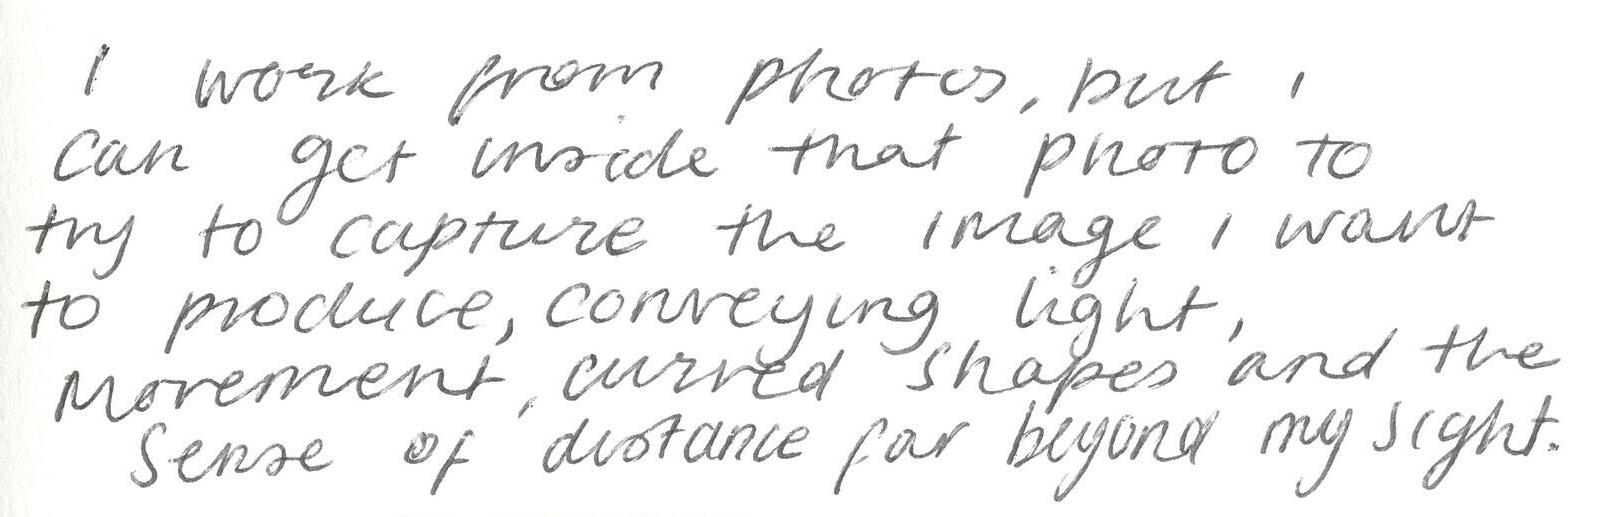 I work from photos, but I
can get inside that photo to
try to capture the image I want
to produce, conveying light,
Movement, curved shapes and the
sense of distance far beyond my sight.